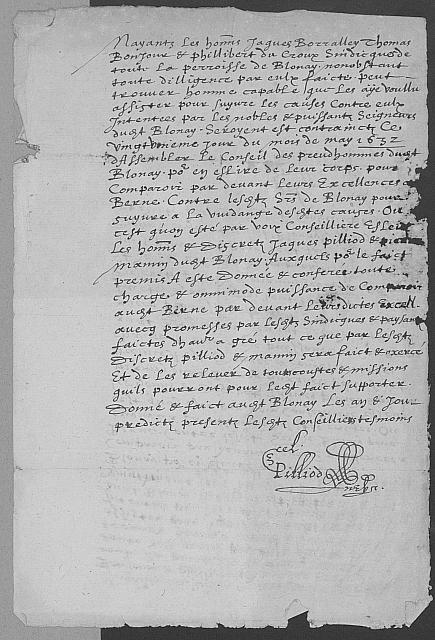 Nayants Les hom̃s Jaques Borralley Thomas
Bonjour & phillibert du Croux Sindicques de
toute La perroisse de Blonay, nonobstant
toute dilligence par eulx faicte peut
trouver homme capable que Les aÿe voullu
assister pour suyvre Les causes Contre eulx
Intentees par Les nobles & puissants Seigneurs
dudt Blonay. Seroyent est contraincts Ce
vingt unieme Jour du mois de may 1632
d'Assembler Le Conseil des preudhommes dudt
Blonay. po.r en eslire de Leur corps. pour
Comparoir par devant Leurs Excellences a
Berne. Contre Lesdts Srs de Blonay pour
suyvre a La vuidange desdtes causes. Ou
cest quon esté par voix Conseilliere Esleu
Les hom̃s & Discrets Jaques pilliod &
mamin dudt Blonay. Auxquels po.r le faict
premis A este Donnée & conferee toute
charge & omnimode puissance de Comparoir
audt Berne par devant Leursdictes Excell.
avecq promesses par Lesdts Sindicques & paysans
faictes d'havoir a gré tout ce que par Lesdts
Discrets pilliod & mamin sera faict & exercé
Et de Les relever de tous coustes & missions
quils pourront pour Ledt faict supporter.
Donné & faict audt Blonay Les an & Jour
predicts presents Lesdts Conseilliers tesmoins
Pilliod